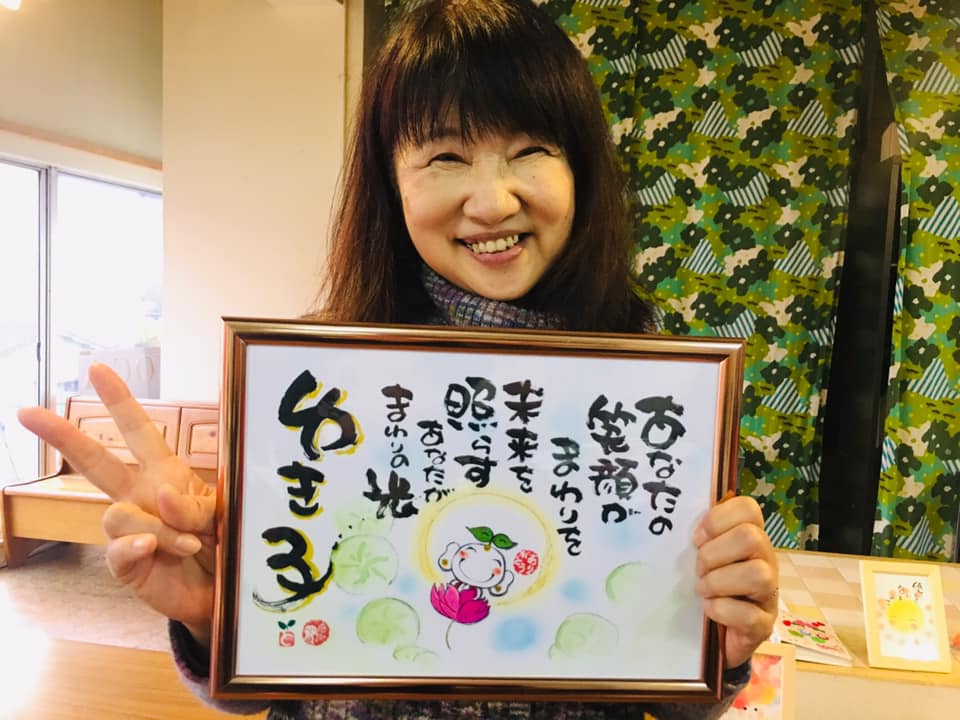 あなたの
笑顔が
まわりを
未来を
照らす
あなたが
まわりの
光
ゆき子